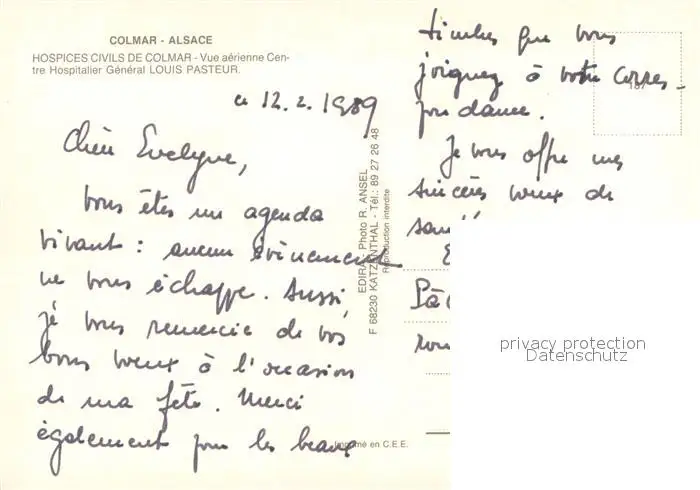 COLMAR - ALSACE
HOSPICES CIVILS DE COLMAR - Vue aérienne Cen-
tre Hospitalier Général LOUIS PASTEUR.
ce 12.2.1989
Chère Evelyne,
Vous êtes un agenda
vivant : aucun évènement
ne vous échappe. Aussi,
je vous remercie de vos
bons voeux à l'occasion
de ma fête. Merci
également pour les beaux
timbres que vous
joignez à votre corres-
pondance.
Je vous offre mes
sincères voeux de
san
E
Pâ
EDIRA - Photo R. ANSEL
F 68230 KATZENTHAL - Tél.: 89 27 26 48
Reproduction interdite
Imprimé en C.E.E.
187
privacy protection
Datenschutz